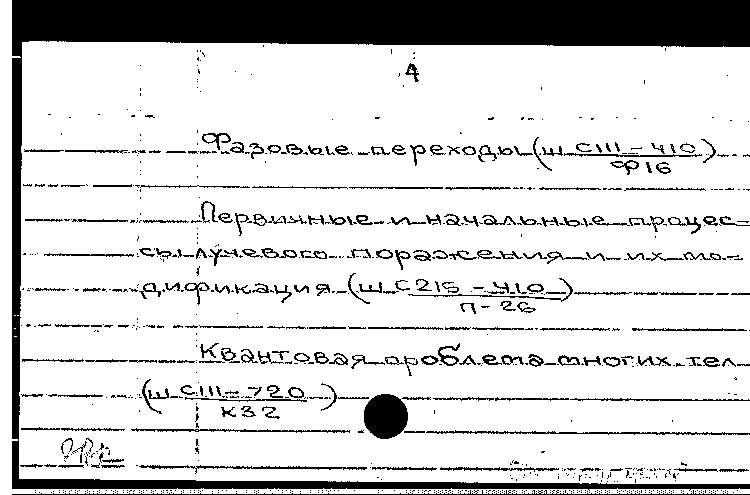 4
Фазовые переходы (Ш С111-410
Ф16)
Первичные и начальные процес-
сы лучевого поражения и их мо-
дификация (Ш С215-410
П-26)
Квантовая проблема многих тел
(Ш С111-720
К32)